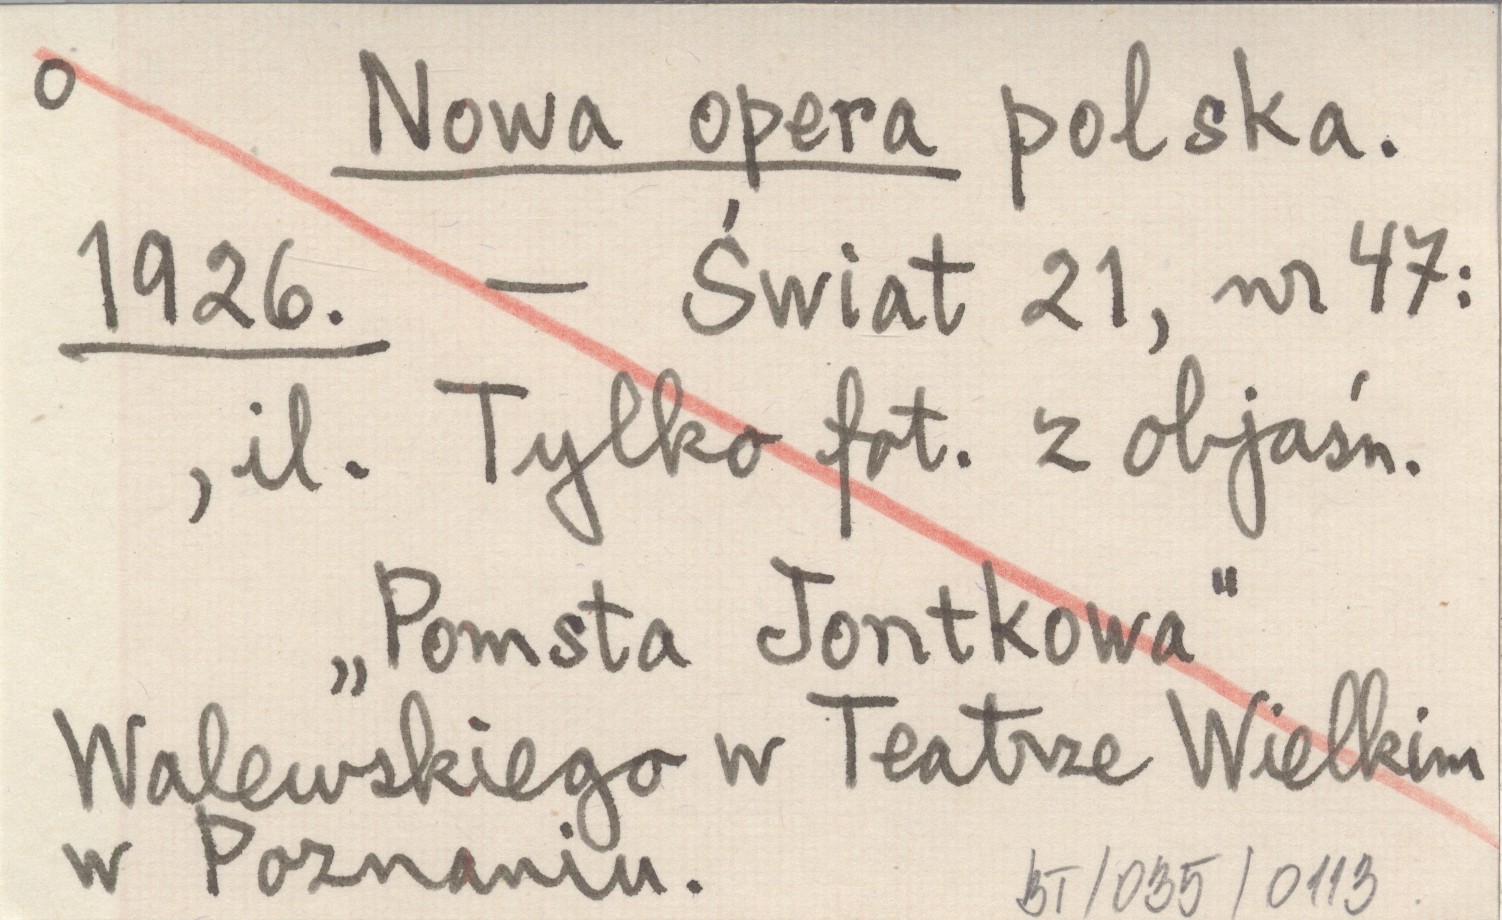 o Nowa opera polska.
1926. — Świat 21, nr 47:
, il. Tylko fot. z objaśn.
„Pomsta Jontkowa"
Walewskiego w Teatrze Wielkim
w Poznaniu.
BT/035/0113